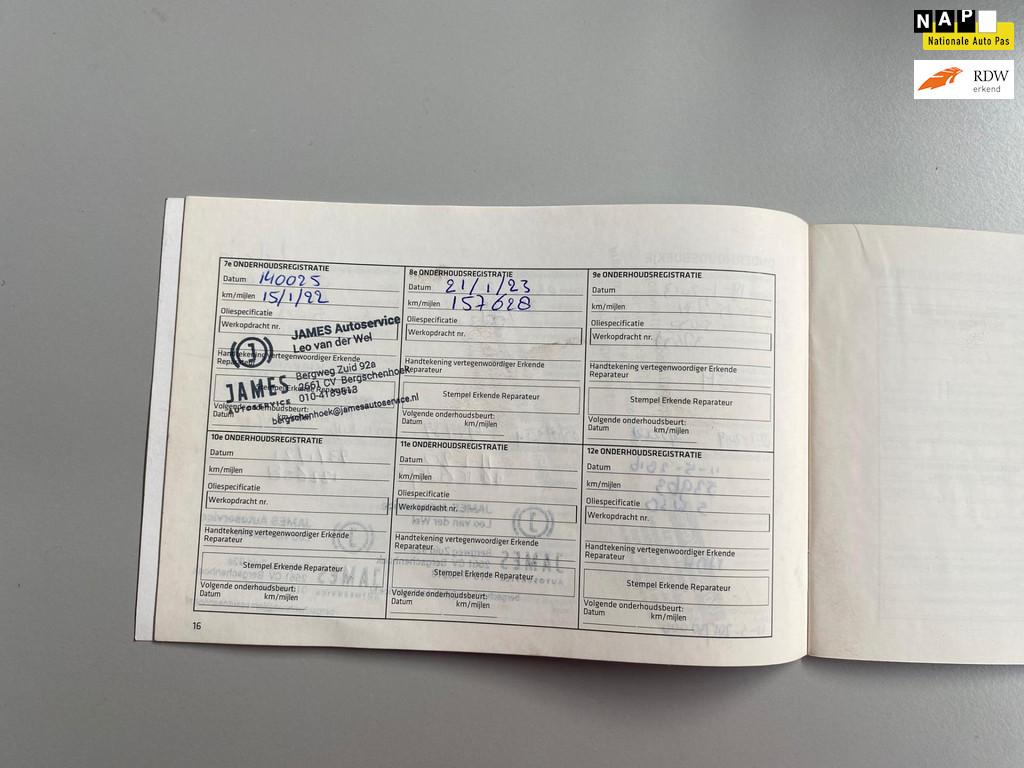 NAP
Nationale Auto Pas
RDW
erkend
7e ONDERHOUDSREGISTRATIE
Datum 140025
km/mijlen 15/1/22
Oliespecificatie
Werkopdracht nr.
Handtekening vertegenwoordiger Erkende
Reparateur
Stempel Erkende Reparateur
Volgende onderhoudsbeurt:
Datum km/mijlen
JAMES Autoservice
Leo van der Wel
Bergweg Zuid 92a
2661 CV Bergschenhoek
010-4189513
bergschenhoek@jamesautoservice.nl
JAMES
AUTOSERVICE
8e ONDERHOUDSREGISTRATIE
Datum 21/1/23
km/mijlen 157628
Oliespecificatie
Werkopdracht nr.
Handtekening vertegenwoordiger Erkende
Reparateur
Stempel Erkende Reparateur
Volgende onderhoudsbeurt:
Datum km/mijlen
9e ONDERHOUDSREGISTRATIE
Datum
km/mijlen
Oliespecificatie
Werkopdracht nr.
Handtekening vertegenwoordiger Erkende
Reparateur
Stempel Erkende Reparateur
Volgende onderhoudsbeurt:
Datum km/mijlen
10e ONDERHOUDSREGISTRATIE
Datum
km/mijlen
Oliespecificatie
Werkopdracht nr.
Handtekening vertegenwoordiger Erkende
Reparateur
Stempel Erkende Reparateur
Volgende onderhoudsbeurt:
Datum km/mijlen
11e ONDERHOUDSREGISTRATIE
Datum
km/mijlen
Oliespecificatie
Werkopdracht nr.
Handtekening vertegenwoordiger Erkende
Reparateur
Stempel Erkende Reparateur
Volgende onderhoudsbeurt:
Datum km/mijlen
12e ONDERHOUDSREGISTRATIE
Datum
km/mijlen
Oliespecificatie
Werkopdracht nr.
Handtekening vertegenwoordiger Erkende
Reparateur
Stempel Erkende Reparateur
Volgende onderhoudsbeurt:
Datum km/mijlen
16